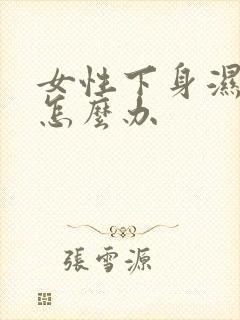 女性下身濕
怎麼办
張雪源